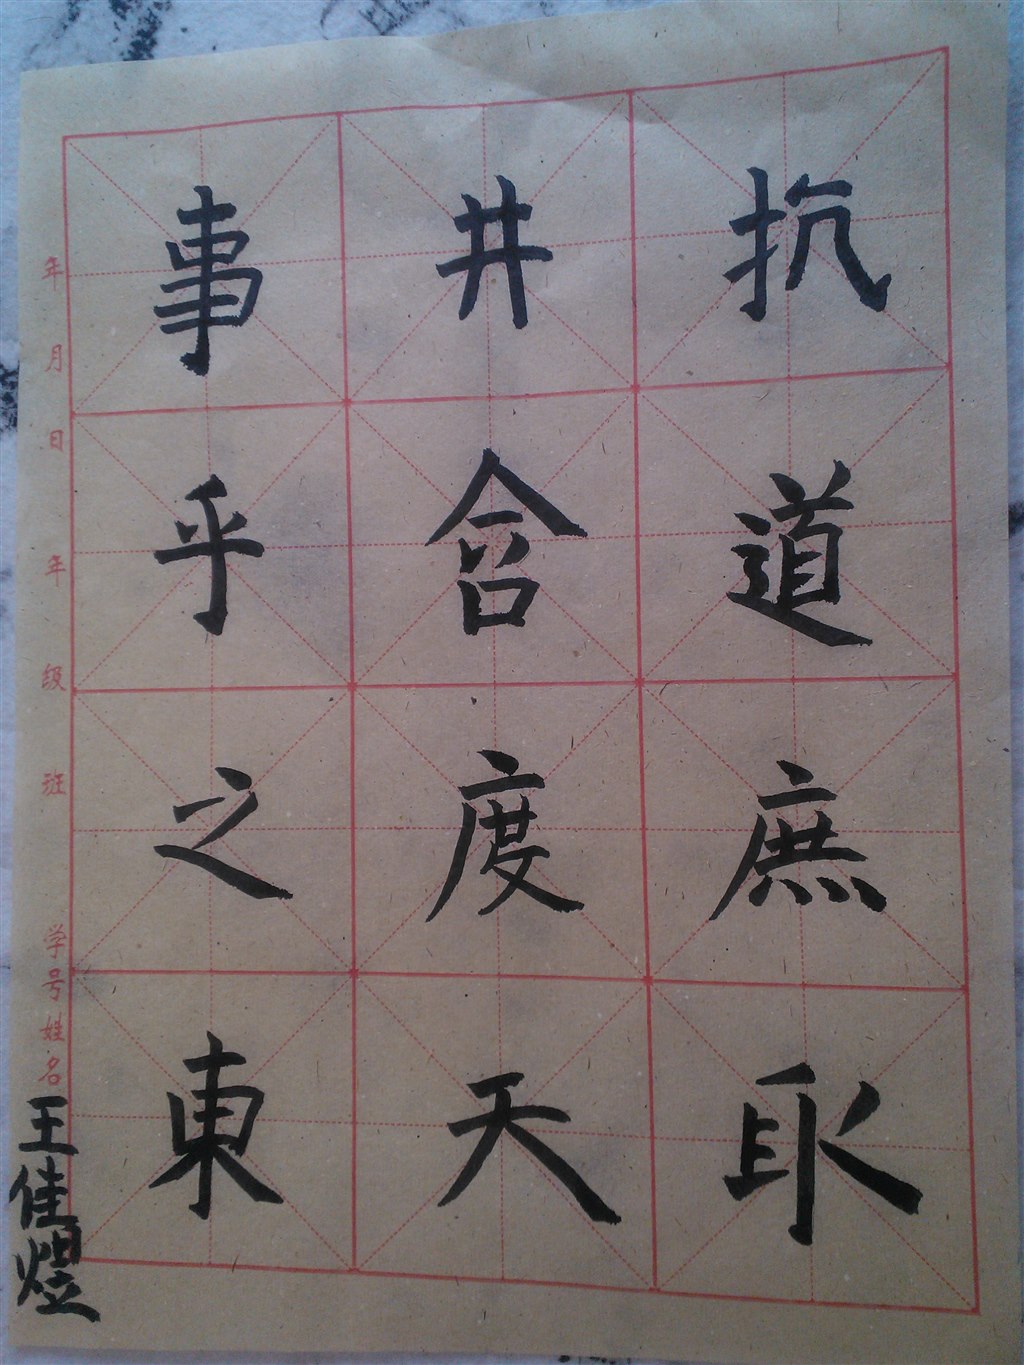 抗道庶
井含度天
事乎之東
年月日 年级班 学号姓名 王佳煜